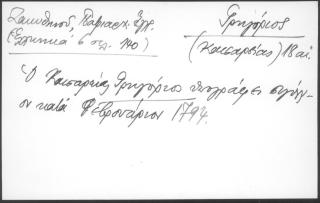 Ζακυθηνοῦ Πατριαρχ. Ἔγγρ.
(Ἑλληνικά 6 σελ. 140)
Γρηγόριος
(Καισαρείας) 18 αἰ.
Ὁ Καισαρείας Γρηγόριος ὑπογράφει σιγίλλι-
ον κατά Φεβρουάριον 1794.